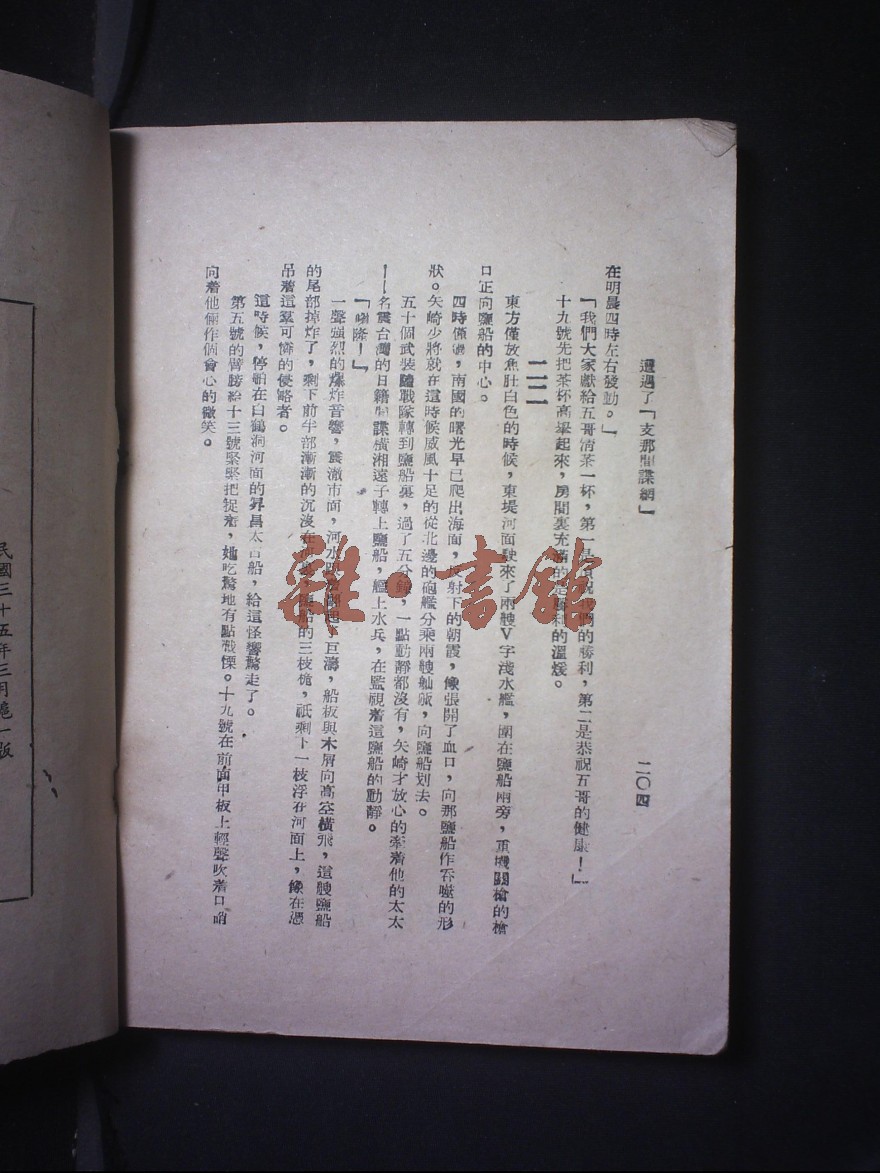 遭遇了「支那間諜網」
二〇四
在明晨四時左右發動。」
「我們大家獻給五哥清茶一杯，第一是預祝我們的勝利，第二是恭祝五哥的健康！」
十九號先把茶杯高舉起來，房間裏充滿的是勝利的溫煖。
一二
東方僅放魚肚白色的時候，東堤河面駛來了兩艘V字淺水艦，圍在鹽船兩旁，重機關槍的槍
口正向鹽船的中心。
四時僅過，南國的曙光早已爬出海面，反射下的朝霞，像張開了血口，向那鹽船作吞噬的形
狀。矢崎少將就在這時候威風十足的從北邊的砲艦分乘兩艘舢舨，向鹽船划去。
五十個武裝陸戰隊轉到鹽船裏，過了五分鐘，一點動靜都沒有，矢崎才放心的牽着他的太太
——名震台灣的日籍間諜橫湘遠子轉上鹽船，艦上水兵，在監視着這鹽船的動靜。
「隆！」
一聲強烈的爆炸音響，震澈市面，河水巨濤，船板與木屑向高空橫飛，這艘鹽船
的尾部掉炸了，剩下前半部漸漸的沉沒在河裏，鹽船的三枝桅，祇剩下一枝浮在河面上，像在憑
吊着這羣可憐的侵略者。
這時候，停舶在白鶴洞河面的昇昌太古船，給這怪響驚走了。
第五號的臂膀給十三號緊緊把捉着，她吃驚地有點戰慄。十九號在前面甲板上輕聲吹着口哨
向着他倆作個會心的微笑。
民國三十五年三月滬一版
雜·書館